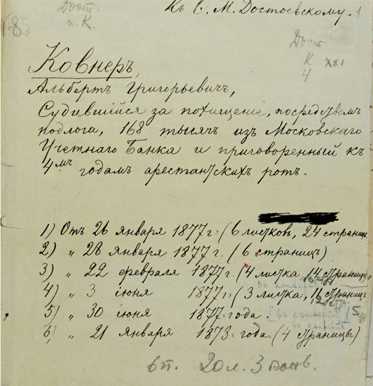 Къ Ѳ. М. Достоевскому.
Дост.
к.
Ковнеръ,
Альбертъ Григорьевичъ,
Судившійся за похищеніе, посредствомъ
подлога, 168 тысячъ изъ Московскаго
Учетнаго Банка и приговоренный къ
4мъ годамъ арестантскихъ ротъ.
1) Отъ 26 января 1877 г. (6 листковъ, 24 страницы
2) „ 28 января 1877 г. (6 страницъ)
3) „ 22 февраля 1877 г. (4 листка, 14 страницъ
4) „ 3 іюня 1877 г. (3 листка,
5) „ 30 іюня 1877 года.
6) „ 21 января 1878 года (4 страницы)
6 п. 20 л. 3